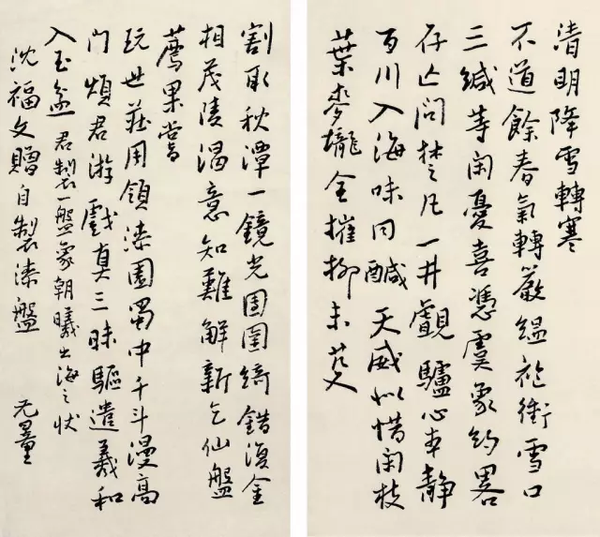 清明降雪轉寒
不道餘春氣轉嚴縕袍衝雪口
三緘等閑憂喜憑虞象約畧
存亡問楚凡一井覷驢心本靜
百川入海味同鹹天威似惜閑枝
葉麥壠全摧柳未芟
割取秋潭一鏡光團團綺錯復金
相茂陵渴意知難解新乞仙盤
薦果嘗
玩世莊周領漆園蜀中千斗漫高
門煩君游戲真三昧驅遣羲和
入玉盆 君製一盤象朝曦出海之狀
沈福文贈自製漆盤 无量